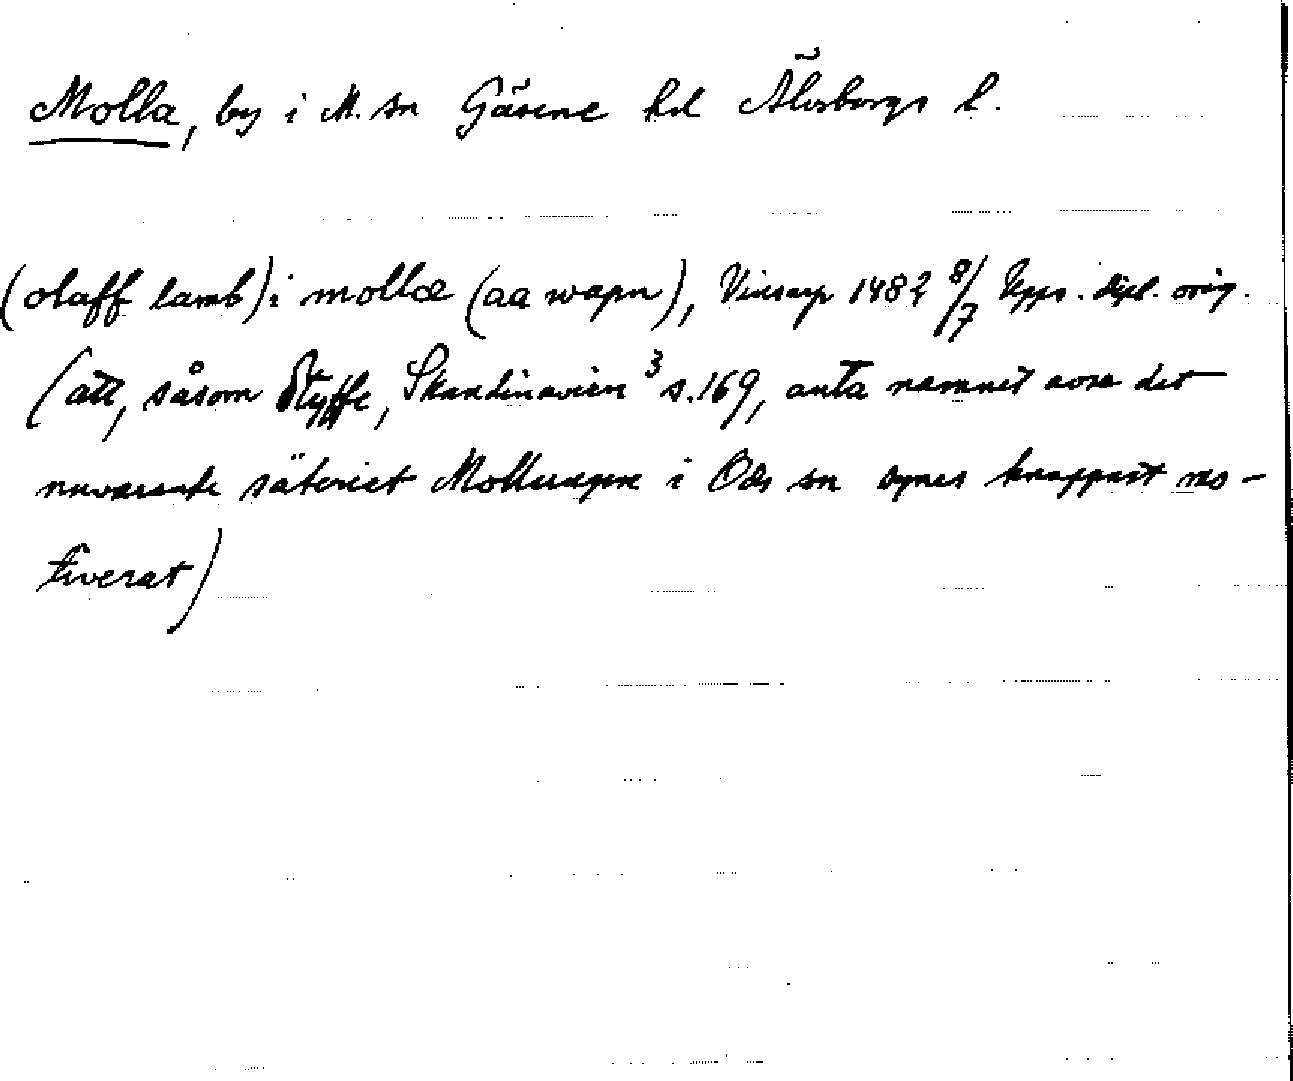 Molla, by i M. sn Gäsene hd Älvsborgs l.
(olaff lamb) i mollæ (aa wapn), Vinsarp 1482 8/7 Upps. dipl. orig.
(att, såsom Styffe, Skandinavien 3 s. 169, anta namnet avse det
nuvarande säteriet Mollungen i Ods sn synes knappast mo-
tiverat)